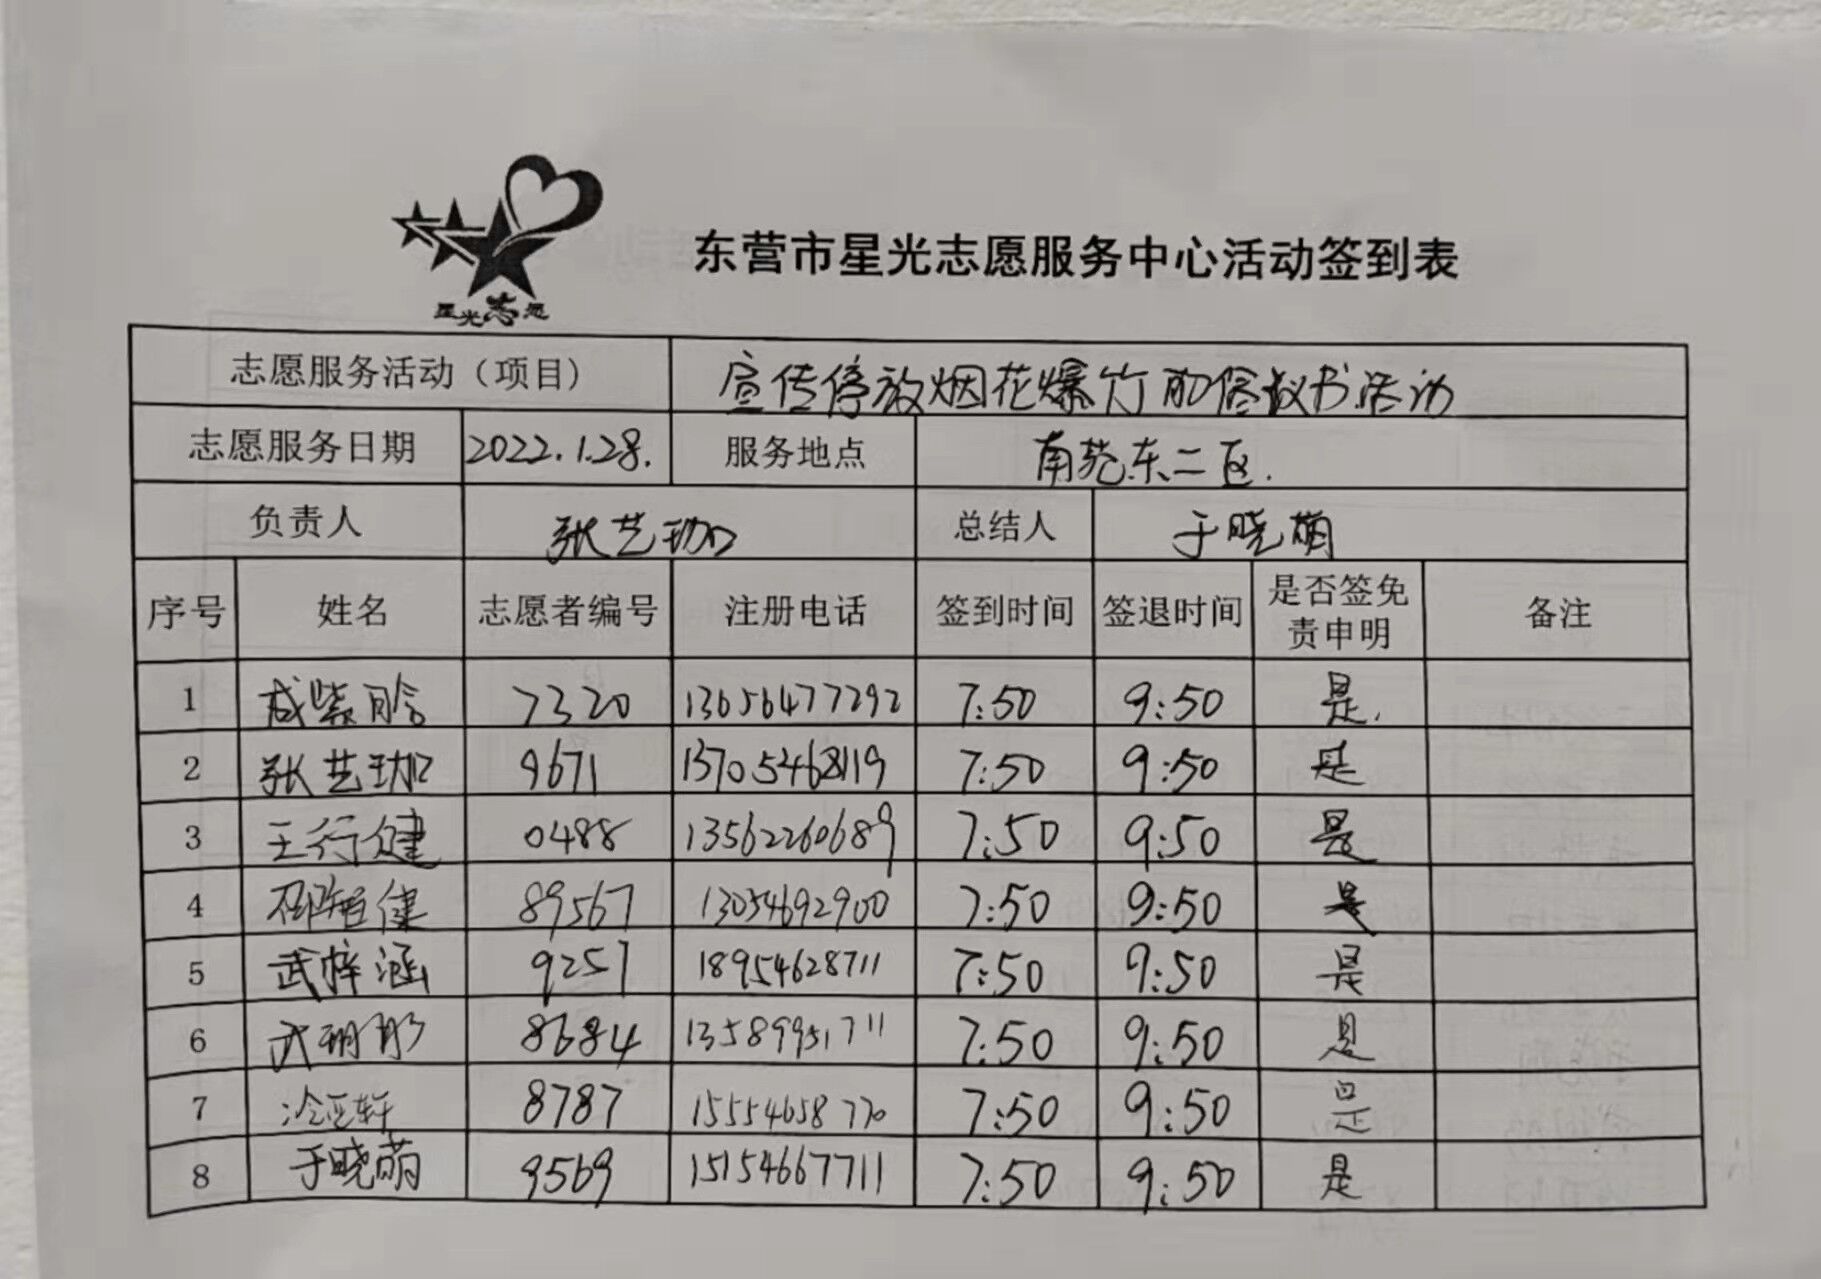 星光志愿
东营市星光志愿服务中心活动签到表
志愿服务活动（项目） 宣传停放烟花爆竹的倡议书活动
志愿服务日期 2022.1.28. 服务地点 南苑东二区.
负责人 张艺珈 总结人 于晓萌
序号 姓名 志愿者编号 注册电话 签到时间 签退时间 是否签免责申明 备注
1 成紫晗 7320 13656477292 7:50 9:50 是.
2 张艺珈 9671 13705468119 7:50 9:50 是
3 王行健 0488 13562260689 7:50 9:50 是
4 邵健 89567 13054692900 7:50 9:50 是
5 武梓涵 9257 18954628711 7:50 9:50 是
6 武珊彤 8684 13589951711 7:50 9:50 是
7 冷轩 8787 15554658770 7:50 9:50 是
8 于晓萌 9569 15154667711 7:50 9:50 是